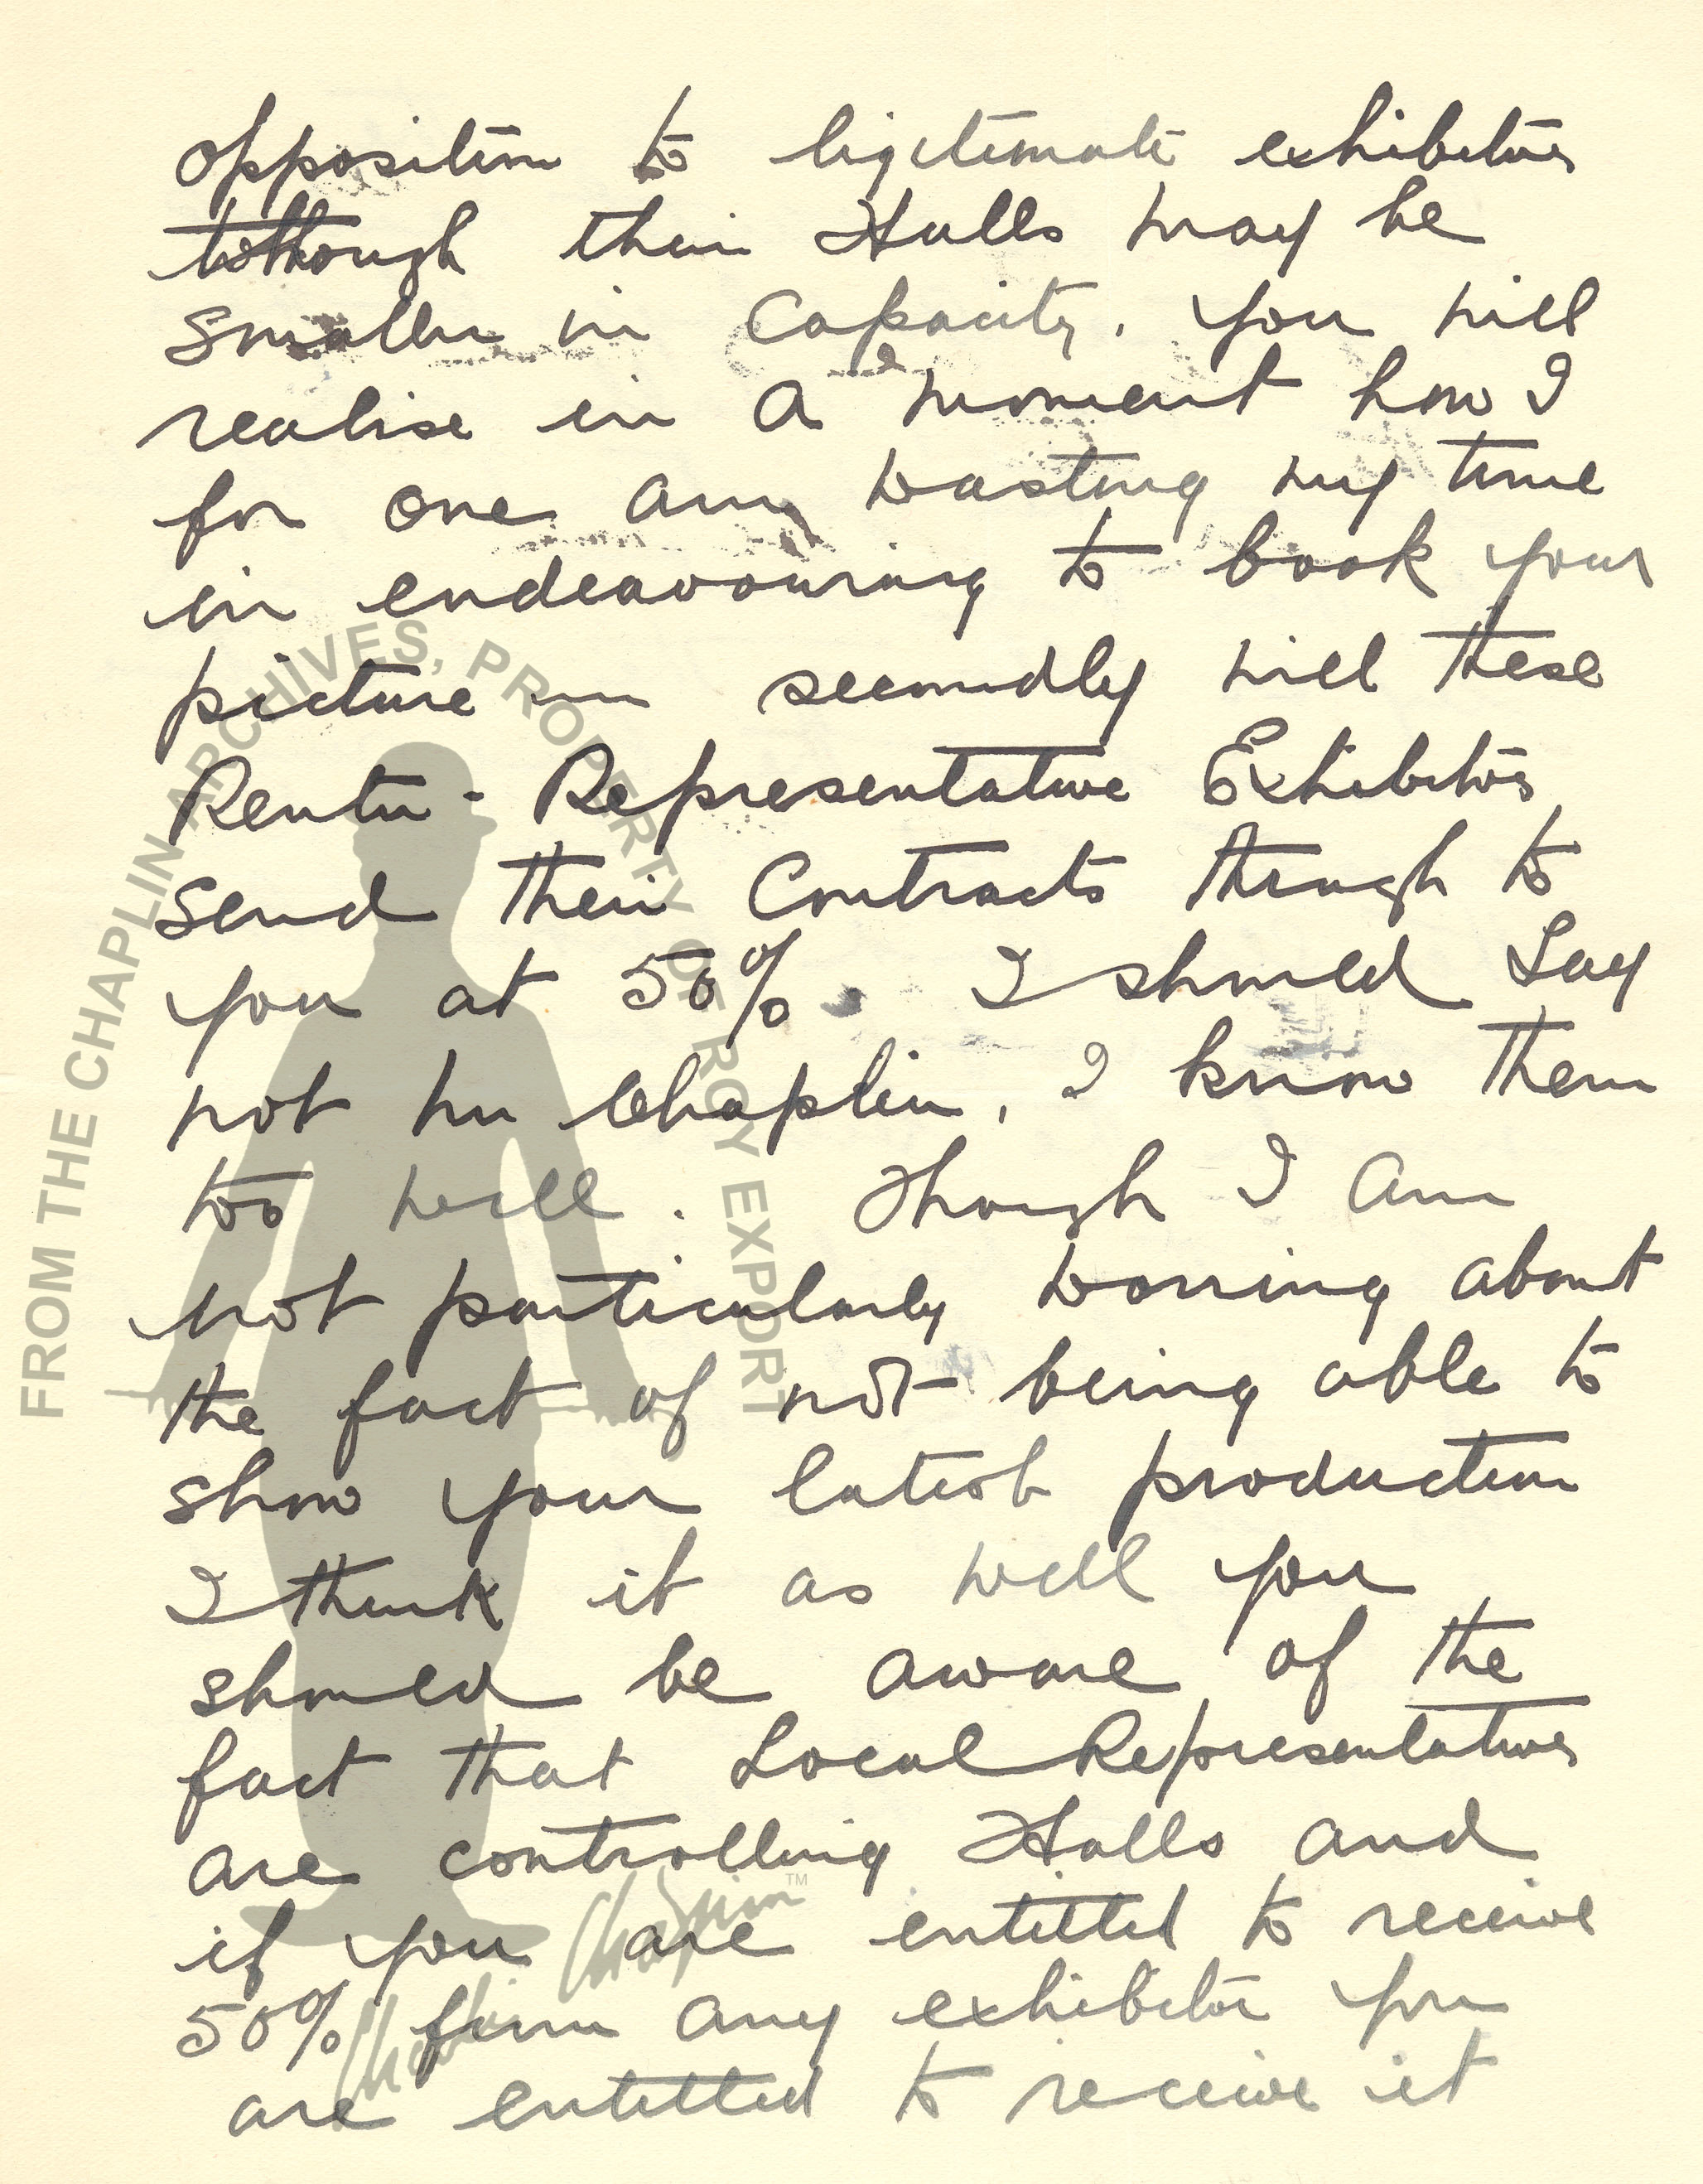 opposition to ligitimate exhibitors
though their Halls may be
smaller in Capacity. You will
realise in a moment how I
for one am wasting my time
in endeavouring to book your
picture secondly will these
Renter - Representative Exhibitors
send their Contracts through to
you at 50% I should Say
not Mr Chaplin, I know them
too well. Though I am
not particularly worring about
the fact of not being able to
show your latest production
I think it as well you
should be aware of the
fact that Local Representatives
are controlling Halls and
if you are entitled to receive
50% from any exhibitor you
are entitled to receive it
FROM THE CHAPLIN ARCHIVES, PROPERTY OF ROY EXPORT
Charlie Chaplin™